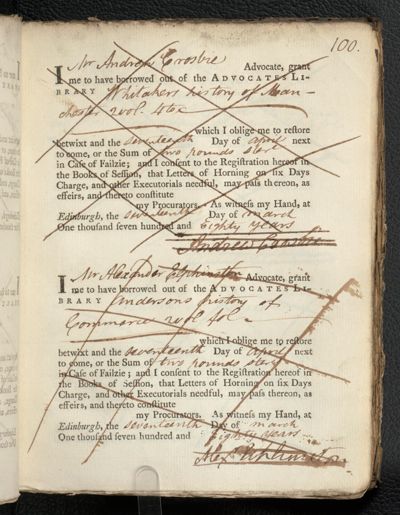 100.
Mr Andrew Crosbie Advocate, grant
I me to have borrowed out of the ADVOCATES LI-
BRARY Whitakers history of Man-
chester 2 vol. 4to
which I oblige me to restore
betwixt and the seventeenth Day of april next
to come, or the Sum of two pounds sterl.
in Case of Failzie; and I consent to the Registration hereof in
the Books of Session, that Letters of Horning on six Days
Charge, and other Executorials needful, may pass thereon, as
effeirs, and thereto constitute
my Procurators. As witness my Hand, at
Edinburgh, the seventeenth Day of march
One thousand seven hundred and Eighty years
Andrew Crosbie
Mr Alexander Elphinston Advocate, grant
I me to have borrowed out of the ADVOCATES LI-
BRARY Andersons history of
Commerce 2 vol. fol.
which I oblige me to restore
betwixt and the seventeenth Day of April next
to come, or the Sum of two pounds sterl.
in Case of Failzie; and I consent to the Registration hereof in
the Books of Session, that Letters of Horning on six Days
Charge, and other Executorials needful, may pass thereon, as
effeirs, and thereto constitute
my Procurators. As witness my Hand, at
Edinburgh, the seventeenth Day of march
One thousand seven hundred and Eighty years
Alexr Elphinston